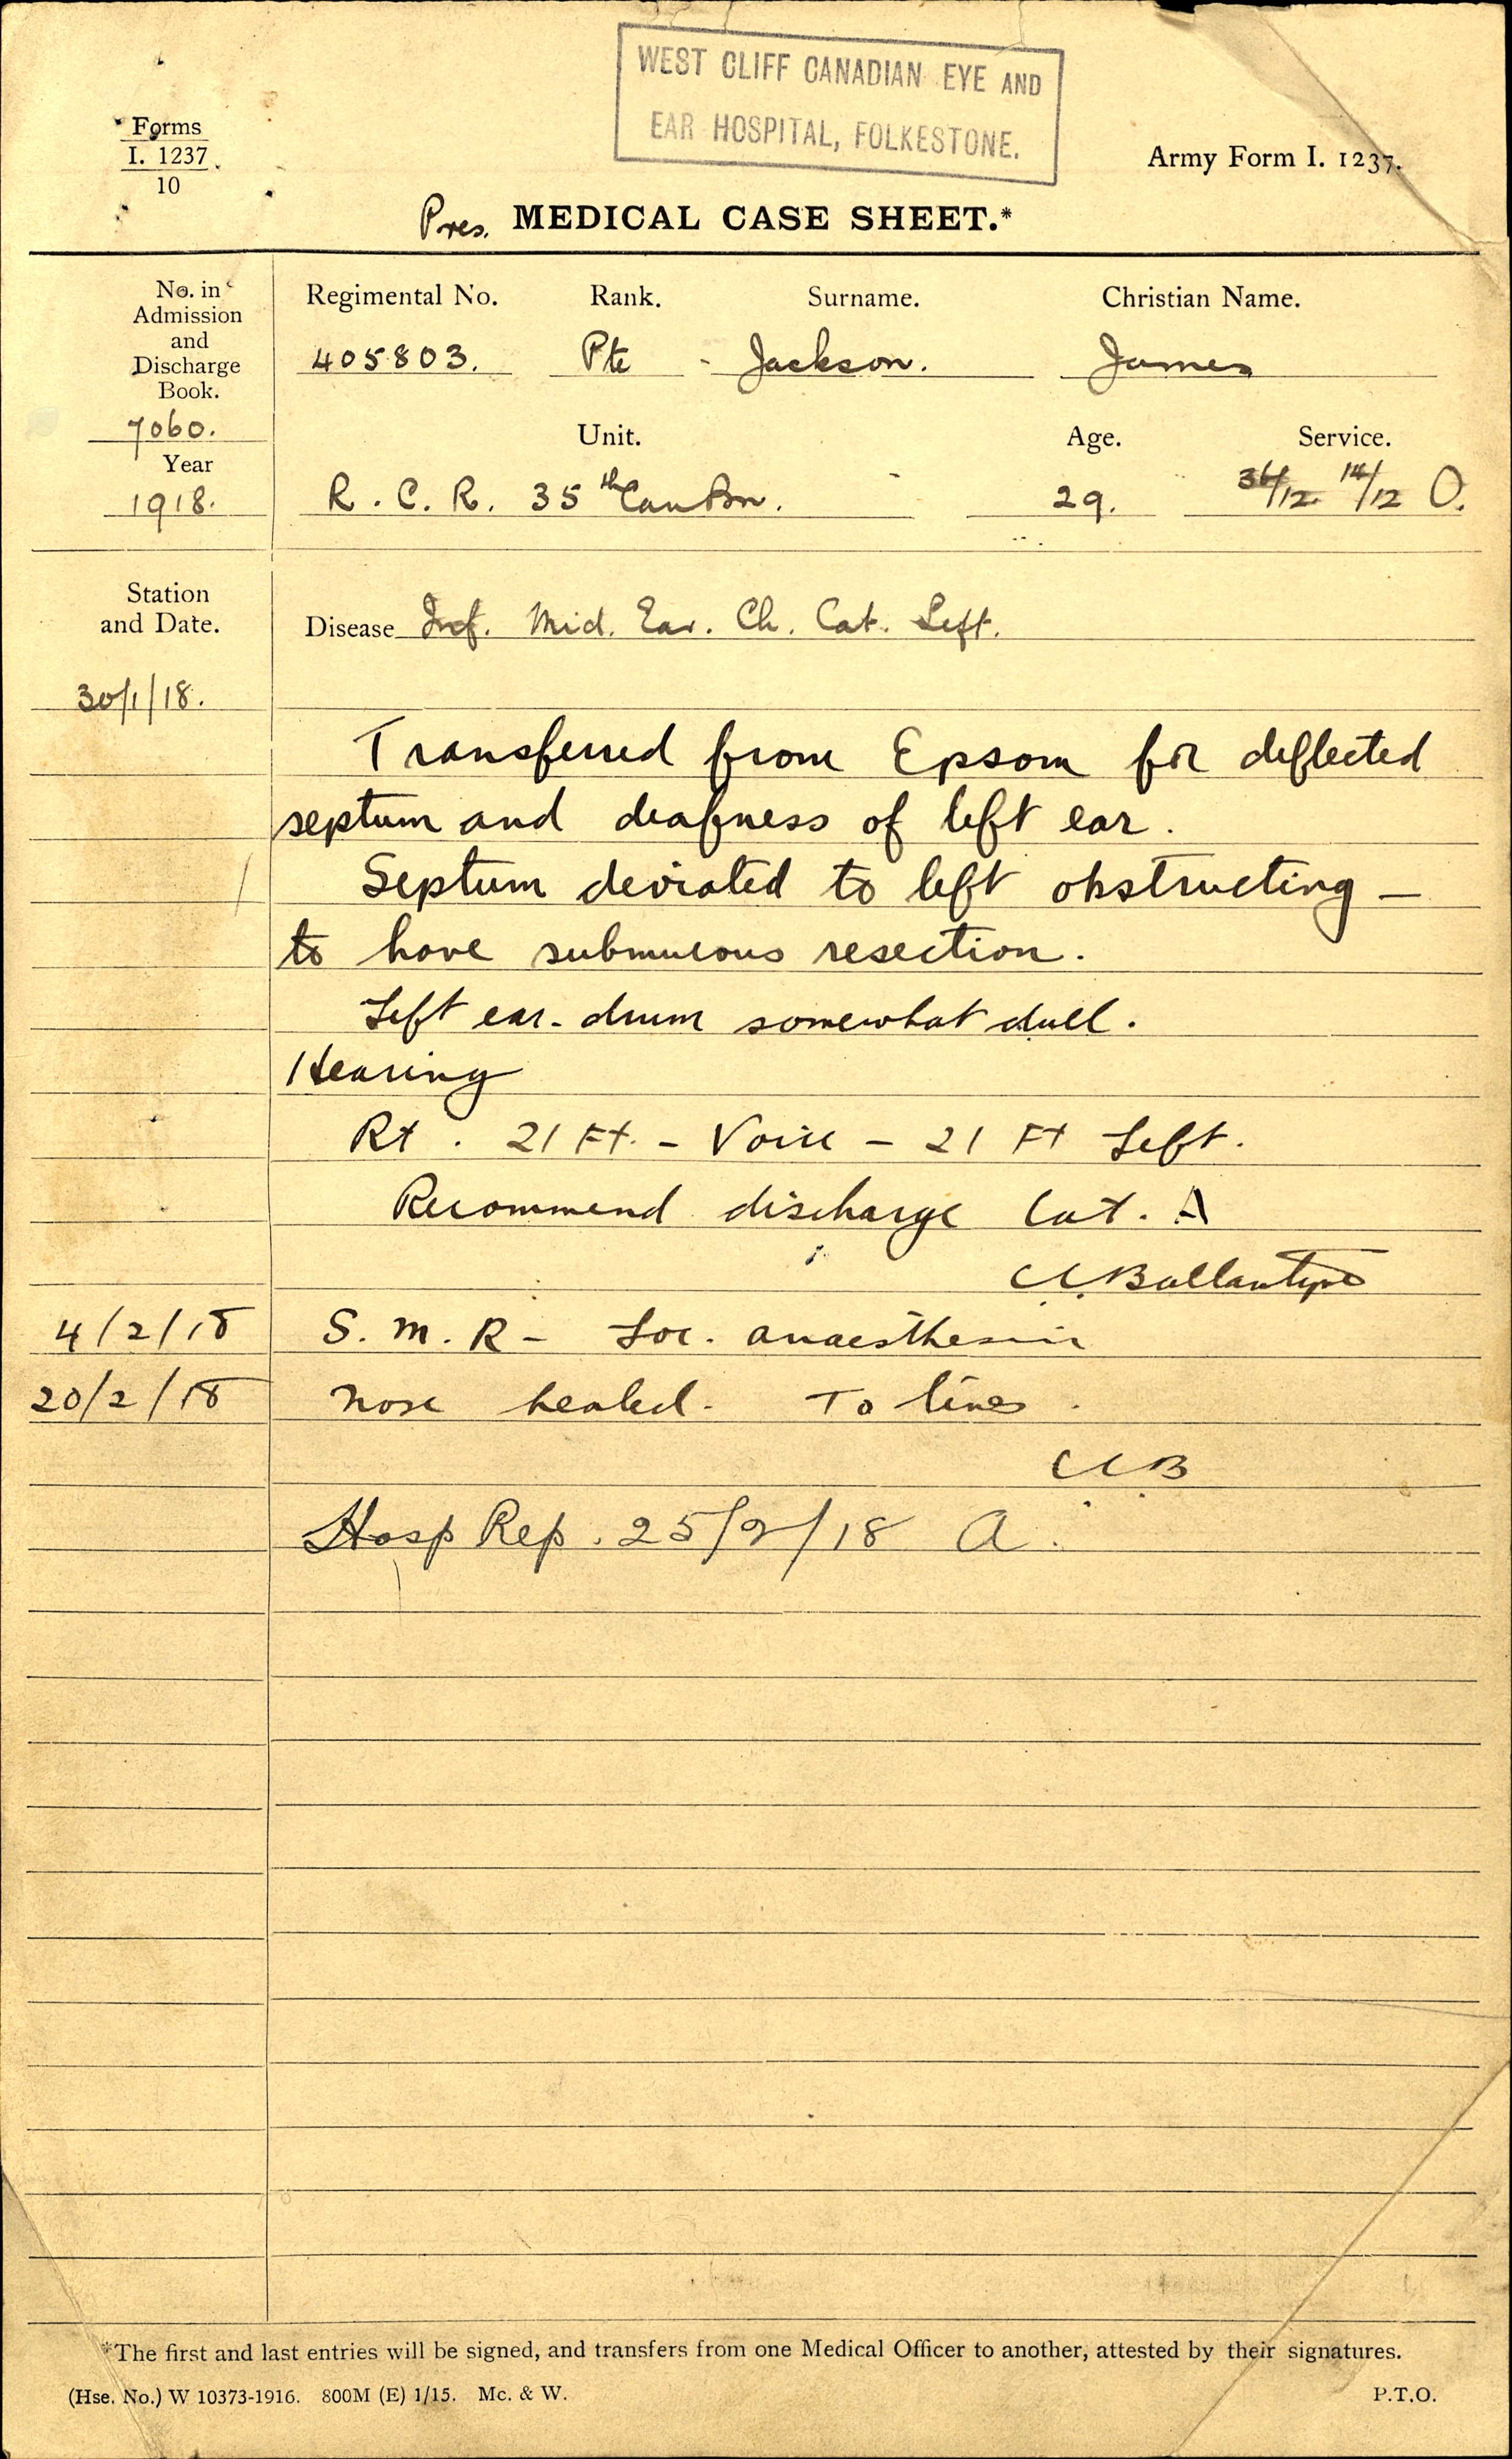 WEST CLIFF CANADIAN EYE AND
EAR HOSPITAL, FOLKESTONE.
Forms
I. 1237
10
Army Form I. 1237.
Pres. MEDICAL CASE SHEET.*
No. in
Admission
and
Discharge
Book.
7060.
Year
1918.
Regimental No. Rank. Surname. Christian Name.
405803. Pte - Jackson. James
Unit. Age. Service.
R. C. R. 35th Can Bn. 29. 36/12 14/12 O.
Station
and Date.
Disease Inf. Mid. Ear. Ch. Cat. Left.
30/1/18.
Transferred from Epsom for deflected
septum and deafness of left ear.
Septum deviated to left obstructing –
to have submucous resection.
Left ear-drum somewhat dull.
Hearing
Rt. 21 Ft. – Voice – 21 Ft Left.
Recommend discharge Cat. A
Ballantyne
4/2/18 S. M. R – Loc. anaesthesia
20/2/18 Nose healed. To lines.
Hosp Rep. 25/2/18 A.
*The first and last entries will be signed, and transfers from one Medical Officer to another, attested by their signatures.
(Hse. No.) W 10373-1916. 800M (E) 1/15. Mc. & W. P.T.O.